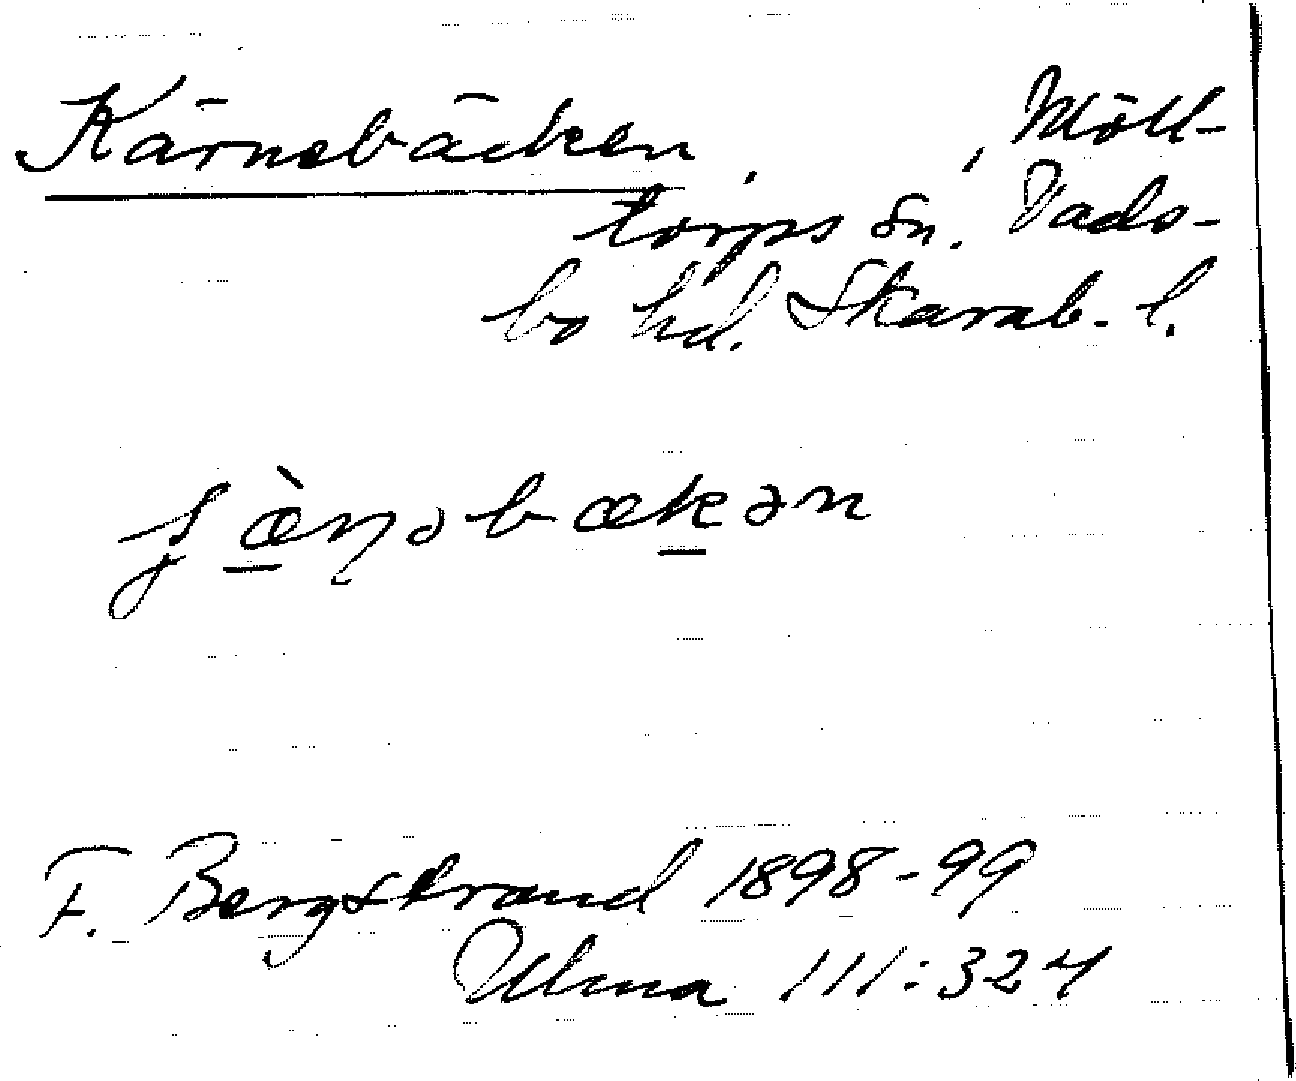 Kärnebäcken, Möll-
torps sn. Vads-
bo hd. Skarab. l.
bækən
F. Bergstrand 1898-99
Ulma 111:324